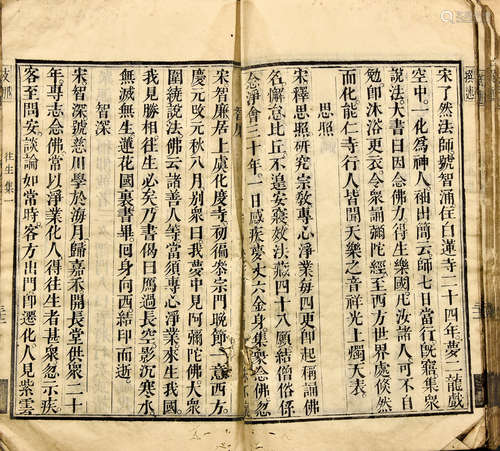 宋了然法師號智涌住白蓮寺二十四年夢二龍戲
空中。一化為神人。袖出簡云。師七日當行。既寤集眾
說法。大書曰。因念佛力。得生樂國。凡汝諸人。可不自
勉。即沐浴更衣。令眾誦彌陀經。至西方世界處。倏然
而化。能仁寺行人。皆聞天樂之音。祥光上燭天表。
思照
宋釋思照。研究宗敎。專心淨業。每四更即起。稱誦佛
名。懈怠比丘。不遑安寢。效法藏四十八願。結僧俗係
念淨會三十年。一日感疾。夢丈六金身。集眾念佛。忽
智廉
宋智廉。居上虞化慶寺。初徧叅宗門。晚節一意西方。
慶元改元秋八月。別眾曰。我夢中見阿彌陀佛。大眾
圍繞說法。佛云。諸善人等。當須專心淨業。來生我國。
我見勝相。往生必矣。乃書偈曰。鴈過長空。影沉寒水。
無滅無生。蓮花國裏。書畢。回身向西。結印而逝。
智深
宋智深。號慈川。學於海月。歸嘉禾。開長堂供眾二十
年。專志念佛。當以淨業化人。得往生者甚眾。忽示疾。
客至問安。談論如常時。客方出門。即遷化。人見紫雲
往生集一